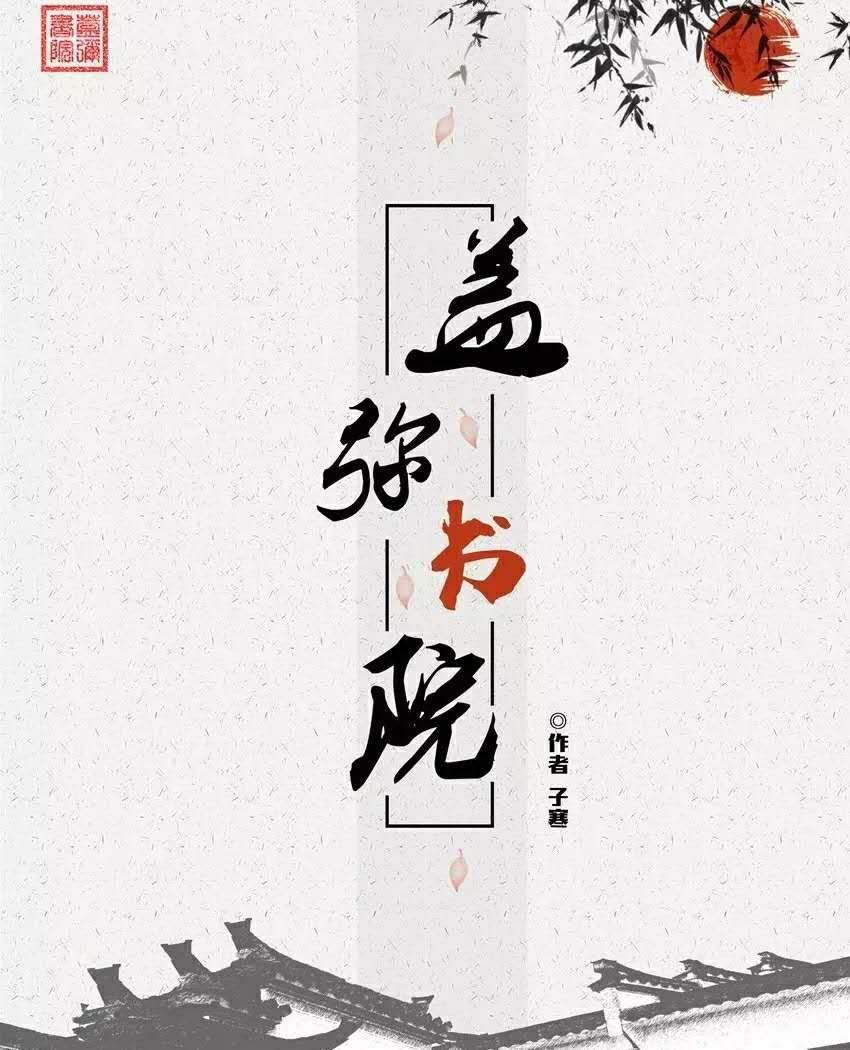 蓋彌書院
盖弥书院
◎作者 子寒